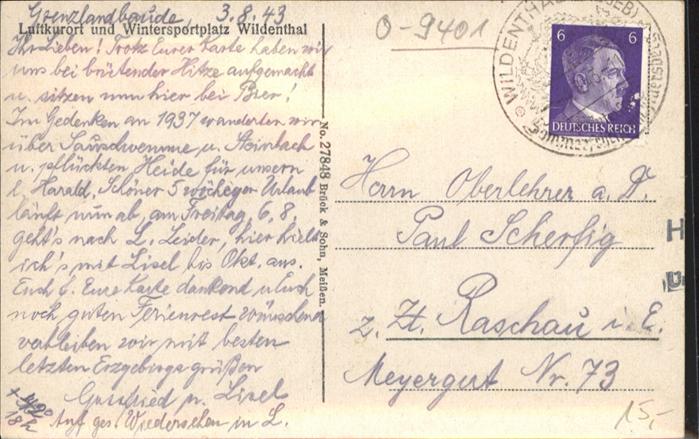 Grenzlandbaude, 3.8.43
Luftkurort und Wintersportplatz Wildenthal
Ihr Lieben! Trotz Eurer Karte haben wir
uns bei brütender Hitze aufgemacht
u. sitzen nun hier bei Bier!
Im Gedenken an 1937 wanderten wir
über Sauschwemme u. Steinbach
u. pflückten Heide für unsern
l. Harald. Schöner 5 wöchiger Urlaub
läuft nun ab, am Freitag, 6.8.
geht's nach L. Leider, hier hielt
ich's mit Lisel bis Okt. aus.
Euch f. Eure Karte dankend u. Euch
noch guten Ferienrest wünschend
verbleiben wir mit besten
letzten Erzgebirgsgrüßen
Gottfried u. Lisel
Auf ges. Wiedersehen in L.
No. 27848 Brück & Sohn, Meißen.
O-9401
WILDENTHAL
6 6
DEUTSCHES REICH
Herrn Oberlehrer a. D.
Paul Scherfig
z. Zt. Raschau i. E.
Meyergut Nr. 73
15,-